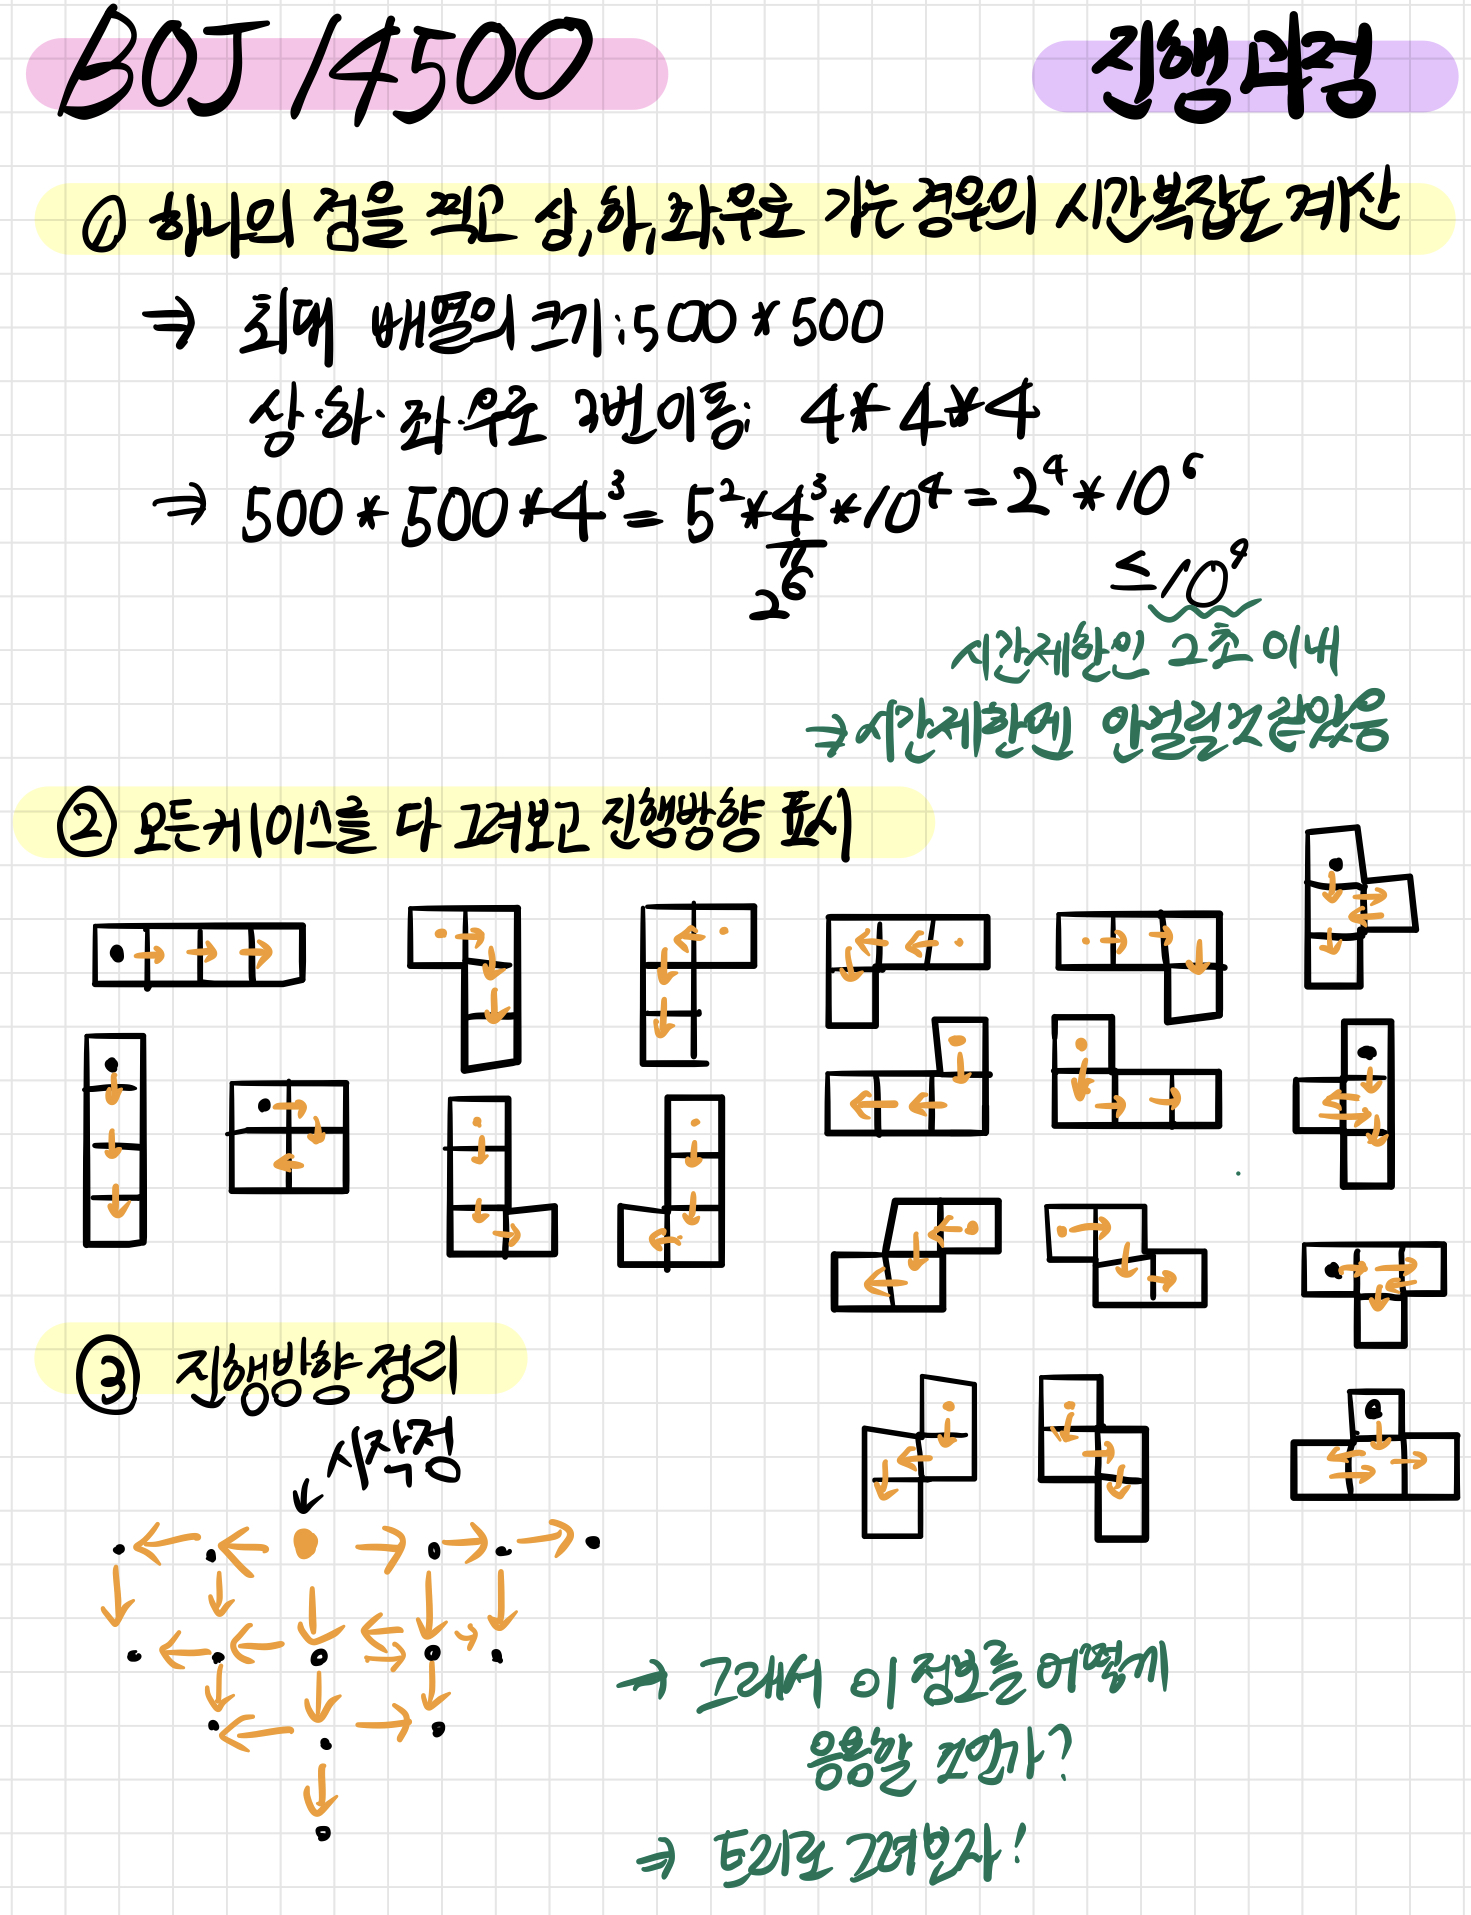 BOJ 14500
진행 과정
① 하나의 점을 찍고 상,하,좌,우로 가는 경우의 시간복잡도 계산
⇒ 최대 배열의 크기 : 500 * 500
상·하·좌·우로 2번 이동: 4 * 4 * 4
⇒ 500 * 500 * 4³ = 5² * 4³ * 10⁴ = 2⁴ * 10⁶
2⁶
≤ 10⁹
시간제한인 2초 이내
⇒ 시간제한엔 안걸릴것같았음
② 모든케이스를 다 그려보고 진행방향 표시
③ 진행방향 정리
시작점
→ 그래서 이 정보를 어떻게
응용할 것인가?
⇒ 트리로 그려본자!